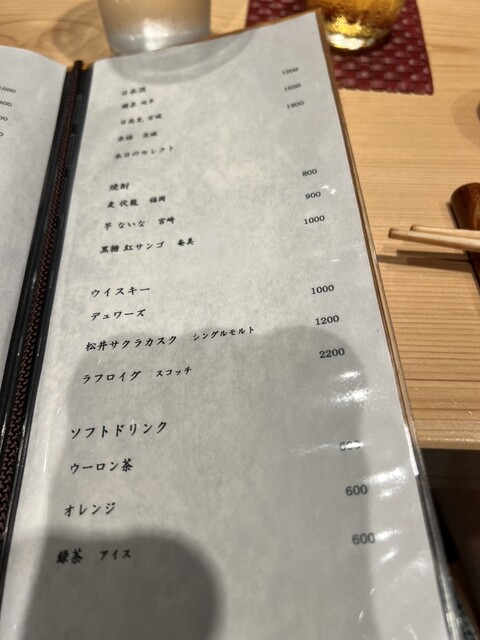 日本酒
岐阜 1200
日高見 宮城 1600
来福 茨城 1800
本日のセレクト
焼酎
麦 伏龍 福岡 800
芋 ないな 宮崎 900
黒糖 紅サンゴ 奄美 1000
ウイスキー
デュワーズ 1000
松井サクラカスク シングルモルト 1200
ラフロイグ スコッチ 2200
ソフトドリンク
ウーロン茶
オレンジ 600
緑茶 アイス 600